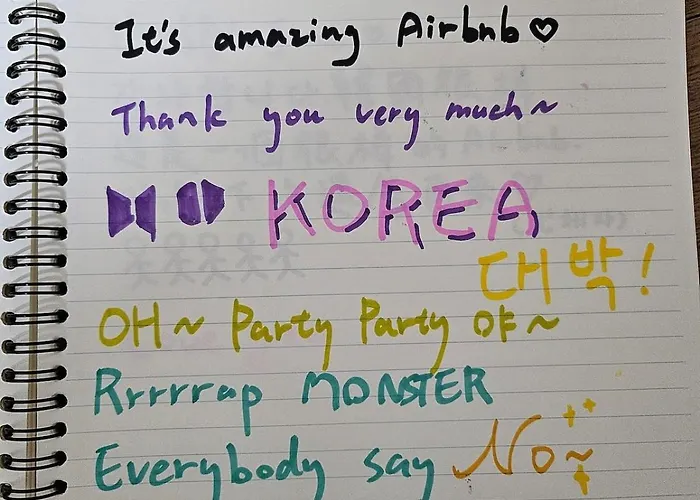 It's amazing Airbnb♡
Thank you very much~
KOREA
대박!
OH~ Party Party 야~
Rrrrrap MONSTER
Everybody say No~